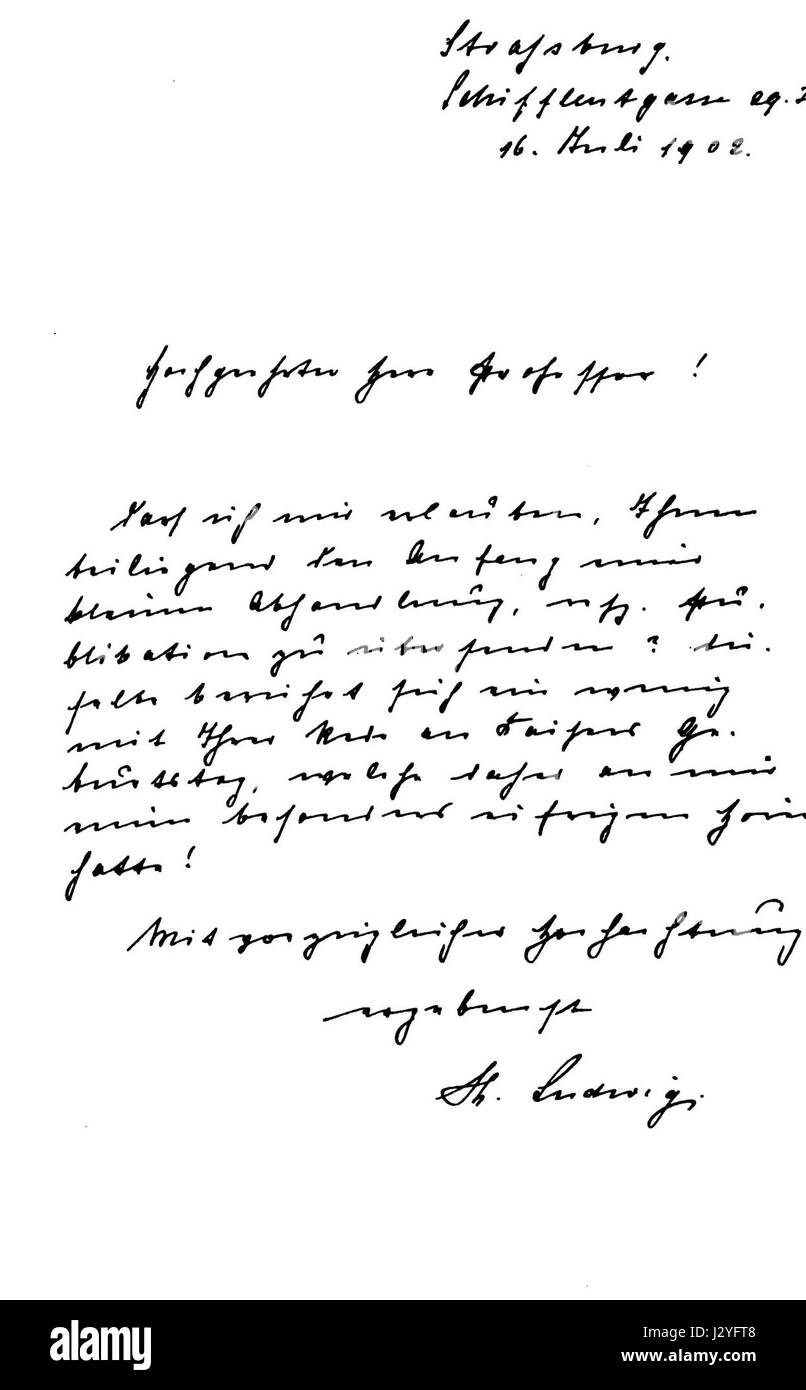 Strassburg.
Schiffleutgasse 29. I
16. Juli 1902.
Hochgeehrter Herr Professor!
Darf ich mir erlauben, Ihnen
beiliegend den Anfang einer
kleinen Abhandlung, resp. Pu-
blikation zu übersenden? Die-
selbe berührt sich ein wenig
mit Ihrer Rede an Kaisers Ge-
burtstag, welche daher an mir
einen besonders eifrigen Hörer
hatte!
Mit vorzüglicher Hochachtung
ergebenst
Th. Ludwig.
alamy
Image ID: J2YFT8
www.alamy.com